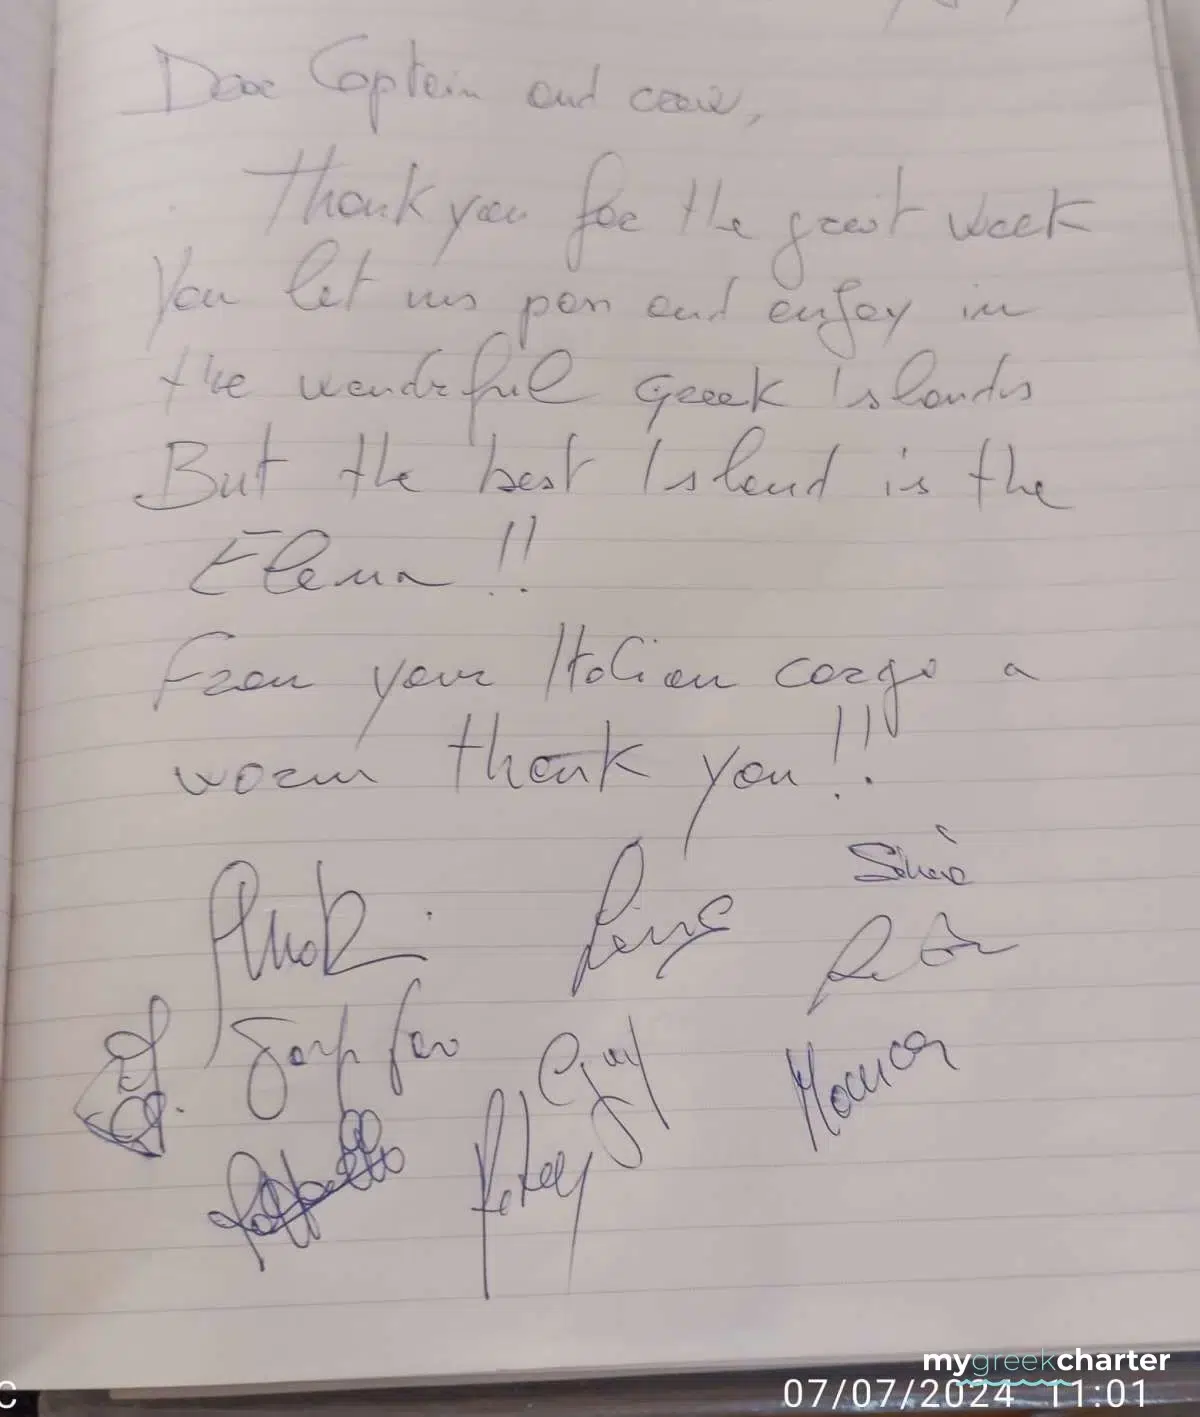 Dear Captain and crew,
Thank you for the great week
You let us pass and enjoy in
the wonderful Greek Islands
But the best Island is the
Elena!!
From your Italian cargo a
warm thank you!!
Raffaello
Monica
mygreekcharter
07/07/2024 11:01